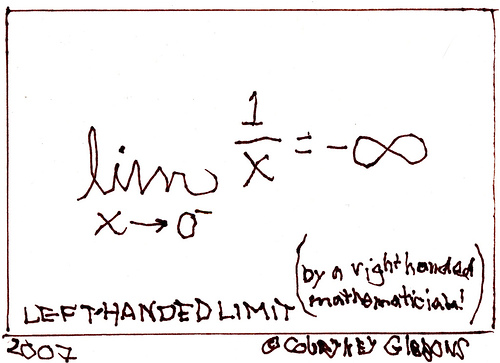 lim 1/x = -∞
x→0⁻
LEFT-HANDED LIMIT (by a right handed
mathematician!)
2007 © COURTNEY GIBBONS